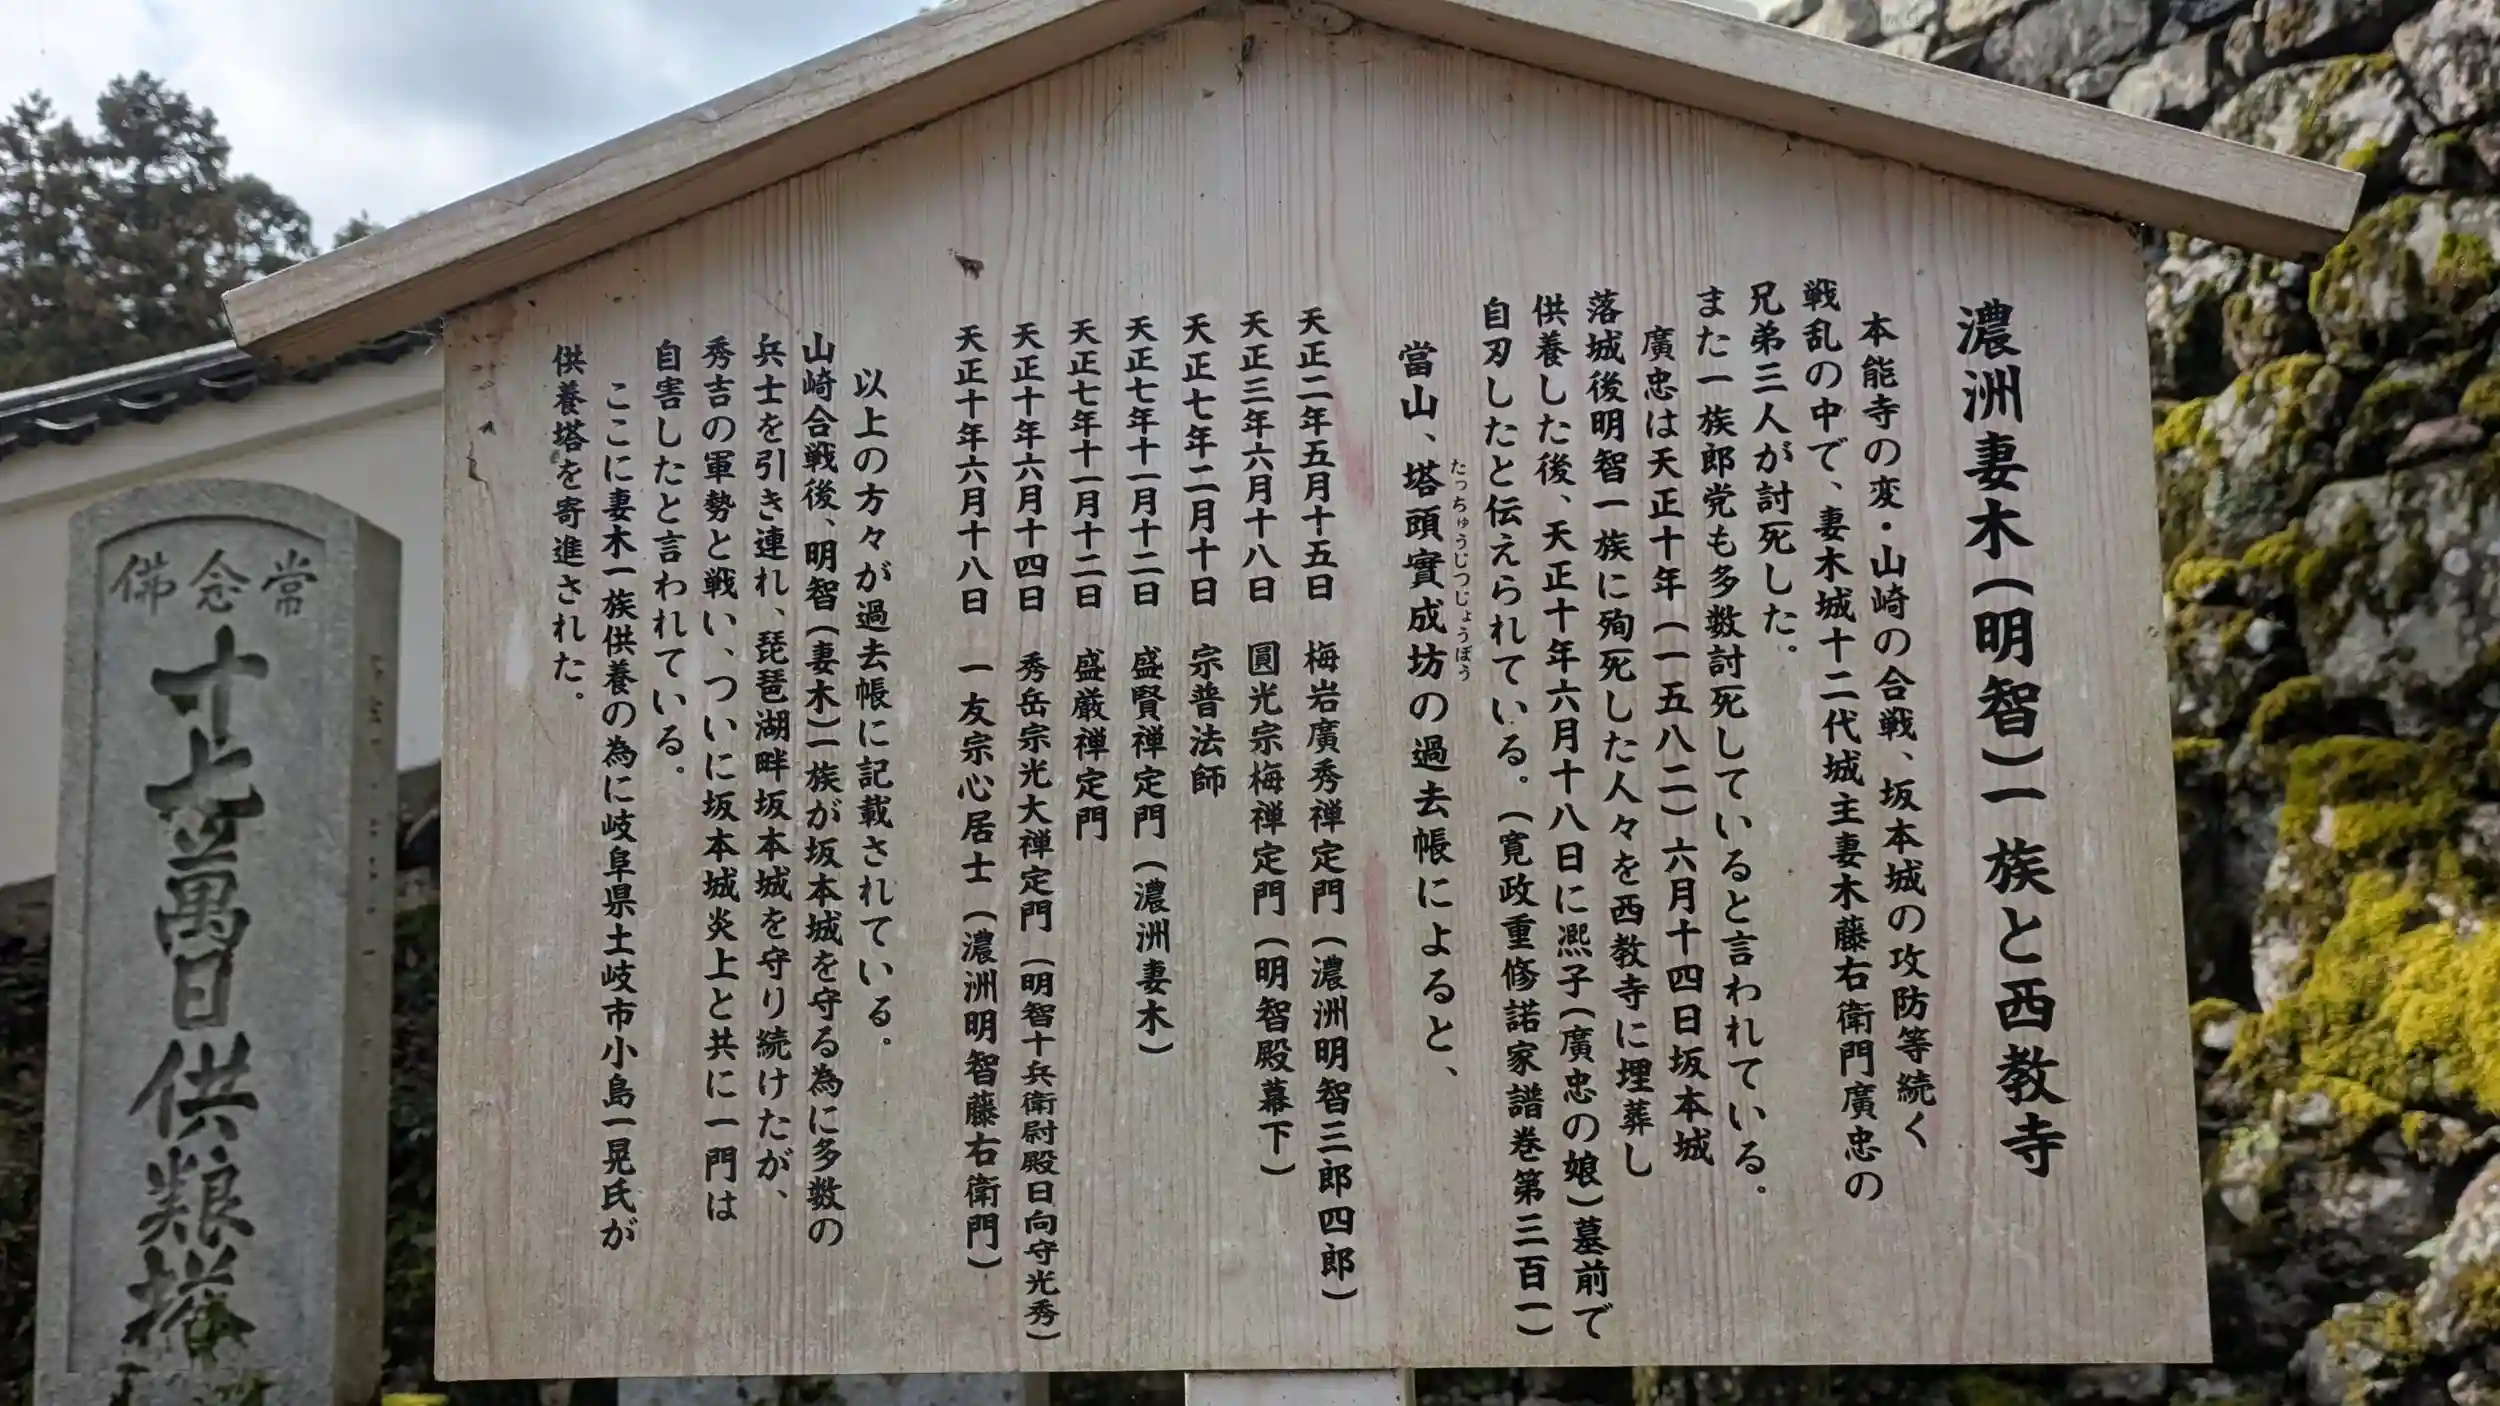 濃洲妻木(明智)一族と西教寺
本能寺の変・山崎の合戦、坂本城の攻防等続く
戦乱の中で、妻木城十二代城主妻木藤右衛門廣忠の
兄弟三人が討死した。
また一族郎党も多数討死していると言われている。
廣忠は天正十年(一五八二)六月十四日坂本城
落城後明智一族に殉死した人々を西教寺に埋葬し
供養した後、天正十年六月十八日に凞子(廣忠の娘)墓前で
自刃したと伝えられている。(寛政重修諾家譜巻第三百一)
當山、塔頭實成坊の過去帳によると、
たっちゅうじつじょうぼう
天正二年五月十五日 梅岩廣秀禅定門(濃洲明智三郎四郎)
天正三年六月十八日 圓光宗梅禅定門(明智殿幕下)
天正七年二月十日 宗普法師
天正七年十一月十二日 盛賢禅定門(濃洲妻木)
天正七年十一月十二日 盛厳禅定門
天正十年六月十四日 秀岳宗光大禅定門(明智十兵衛尉殿日向守光秀)
天正十年六月十八日 一友宗心居士(濃洲明智藤右衛門)
以上の方々が過去帳に記載されている。
山崎合戦後、明智(妻木)一族が坂本城を守る為に多数の
兵士を引き連れ、琵琶湖畔坂本城を守り続けたが、
秀吉の軍勢と戦い、ついに坂本城炎上と共に一門は
自害したと言われている。
ここに妻木一族供養の為に岐阜県土岐市小島一晃氏が
供養塔を寄進された。
常念佛
十七萬日供養塔